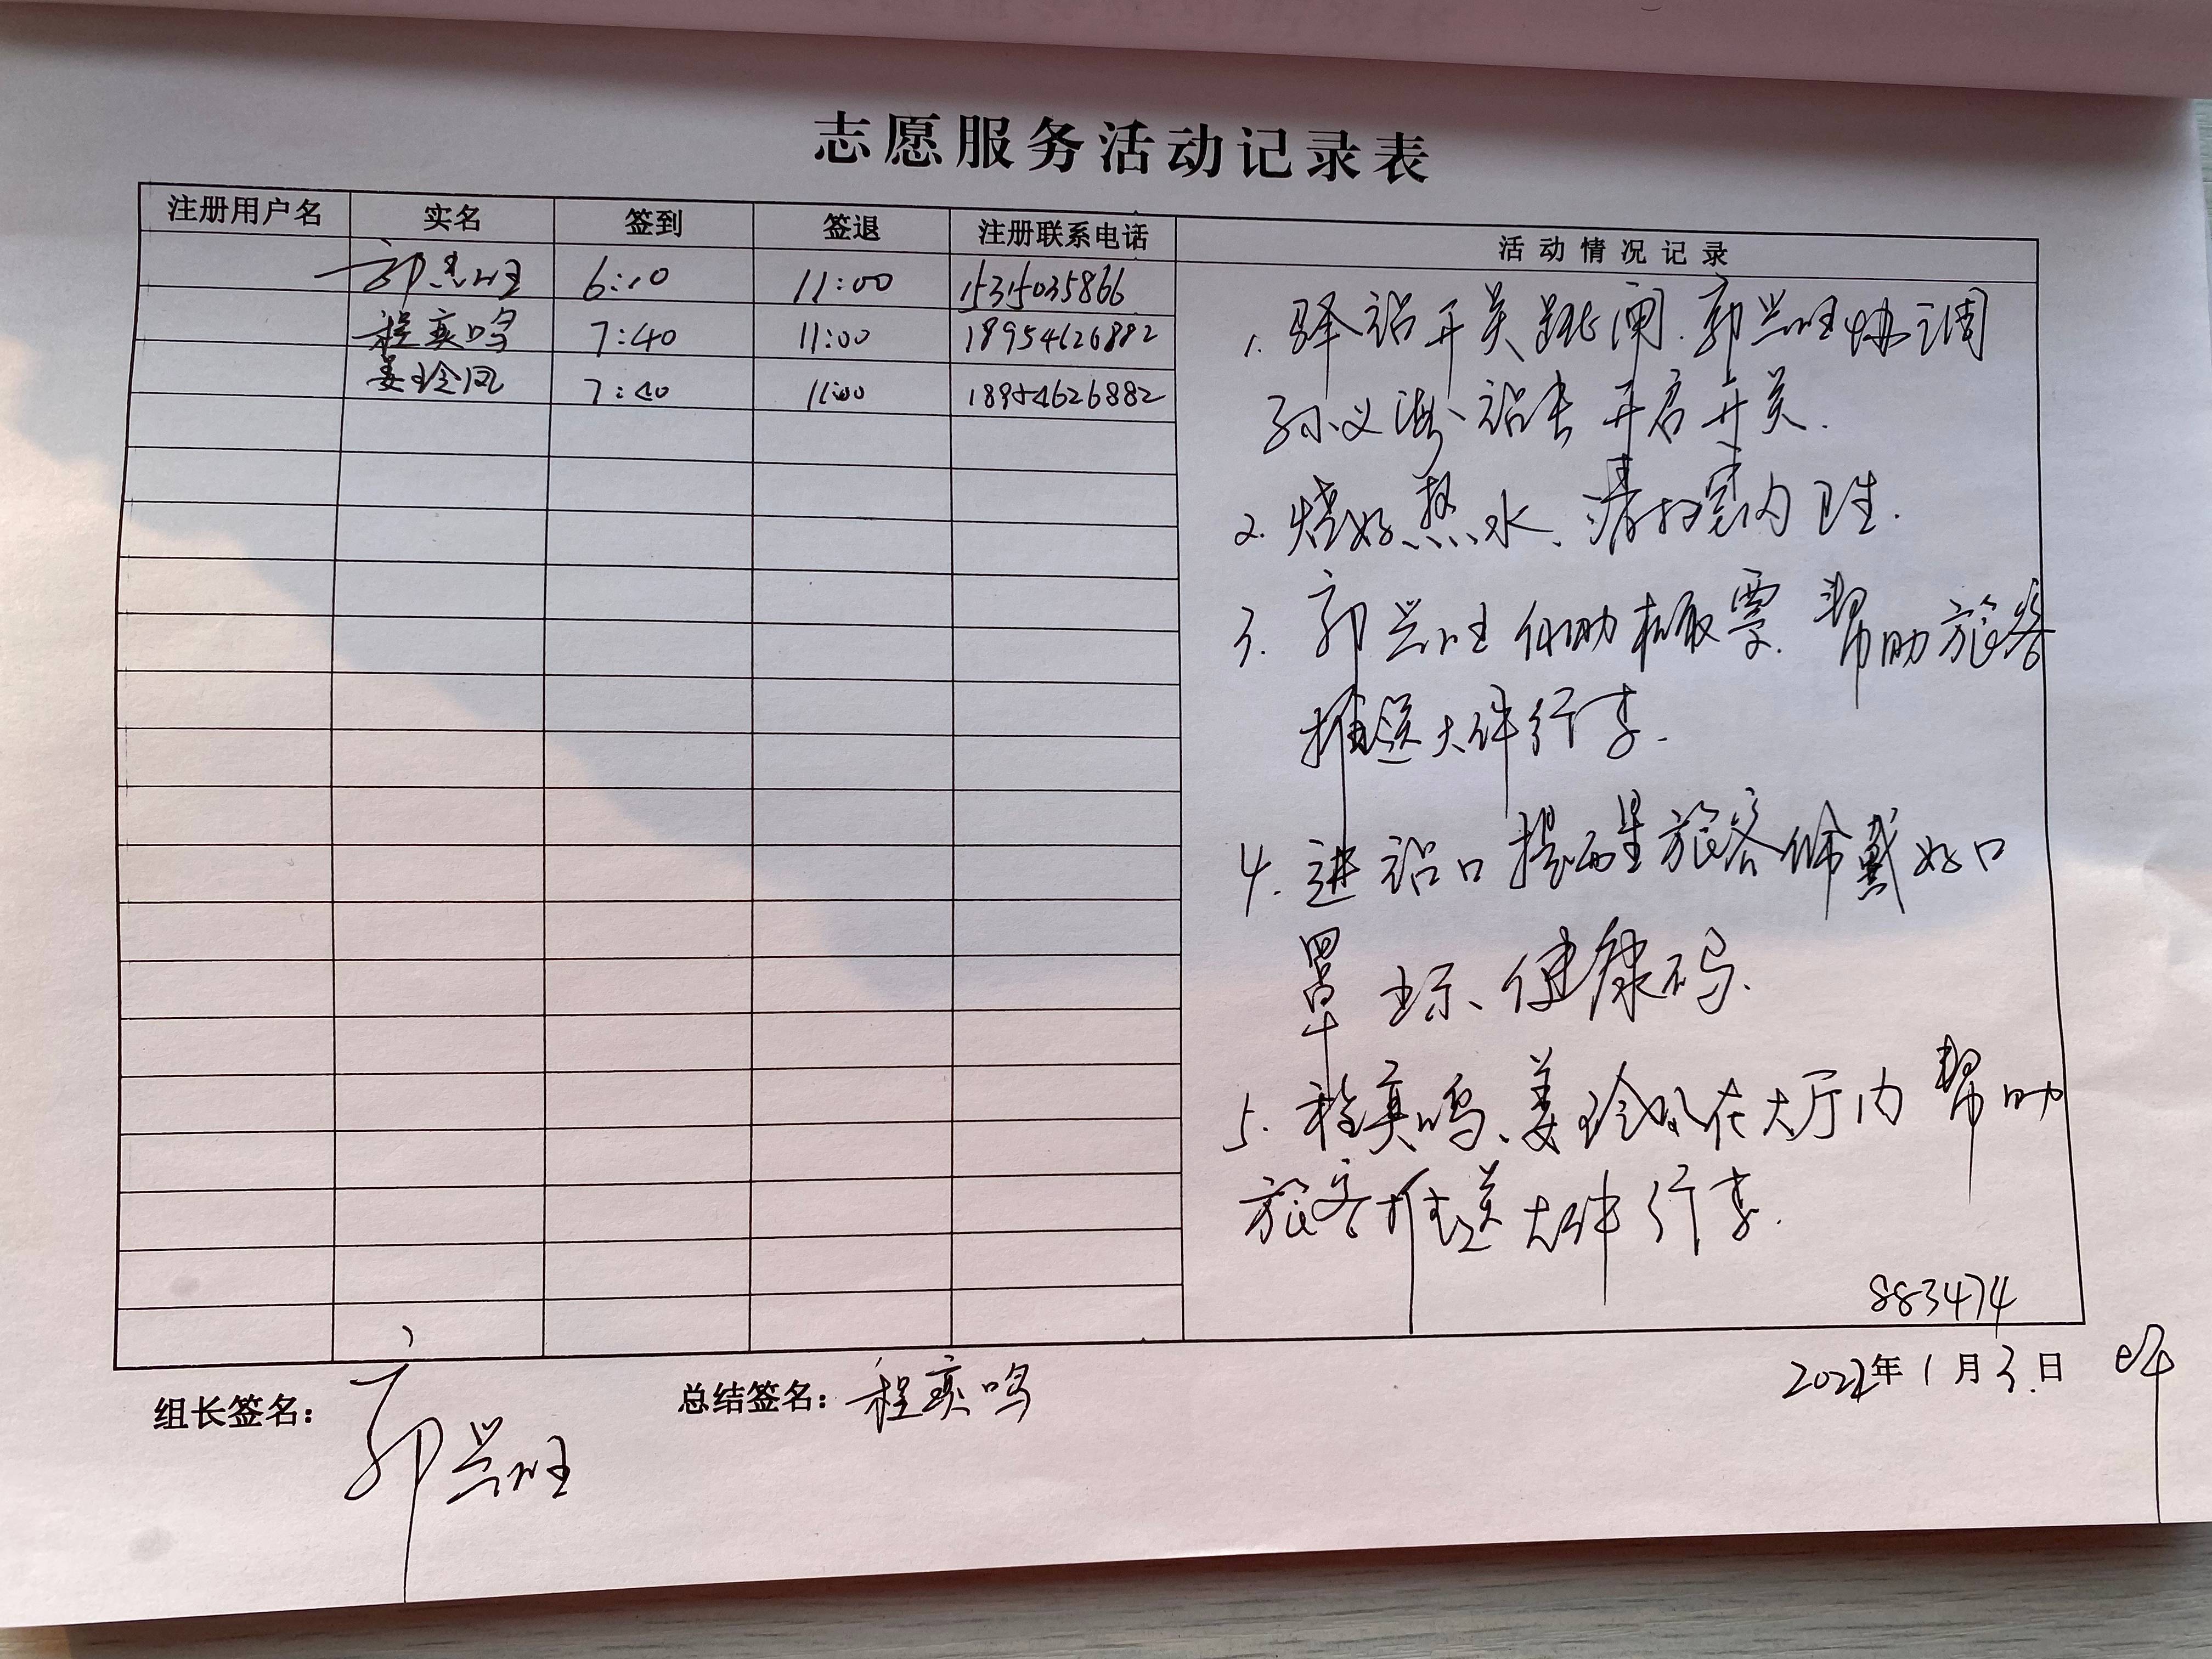 志愿服务活动记录表
注册用户名 实名 签到 签退 注册联系电话 活动情况记录
郭兴旺 6:10 11:00 15315035866
程奕鸣 7:40 11:00 18954626882
姜玲凤 7:40 11:00 18954626882
1. 驿站开关跳闸.郭兴旺协调
孙义 站长开启开关.
2. 烧好热水、清扫室内卫生.
3. 郭兴旺 协助 取票.帮助旅客
推送大件行李.
4. 进站口提醒旅客佩戴好口
罩 出示、健康码.
5. 程奕鸣、姜玲凤在大厅内帮助
旅客推送大件行李.
883474
组长签名：郭兴旺 总结签名：程奕鸣 2022年1月3日